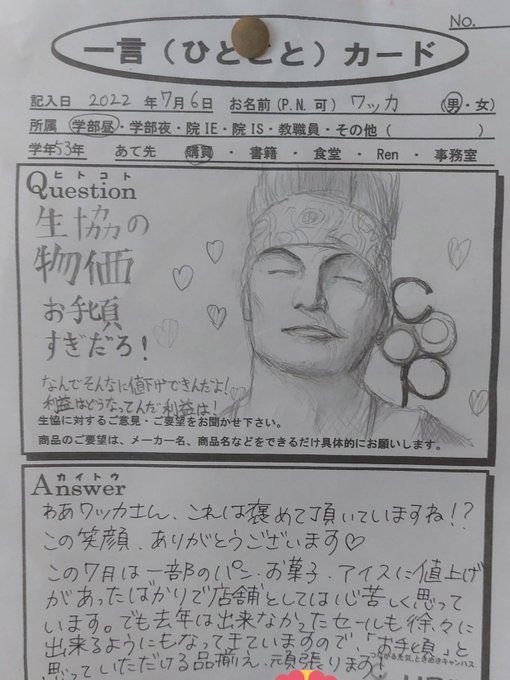 No.
一言(ひとこと)カード
記入日 2022 年7月6日 お名前(P.N. 可) ワッカ (男・女)
所属 学部昼・学部夜・院IE・院IS・教職員・その他( )
学年53年 あて先 購買 ・ 書籍 ・ 食堂 ・ Ren ・ 事務室
ヒトコト
Question
生協の
物価
お手頃
すぎだろ!
COOP
なんでそんなに値下げできんだよ!
利益はどうなってんだ利益は!
生協に対するご意見・ご要望をお聞かせ下さい。
商品のご要望は、メーカー名、商品名などをできるだけ具体的にお願いします。
カイトウ
Answer
わあワッカさん、これは褒めて頂いていますね!?
この笑顔、ありがとうございます♡
この7月は一部のパン、お菓子、アイスに値上げ
があったばかりで店舗としては心苦しく思って
います。でも去年は出来なかったセールも徐々に
出来るようにもなってきていますので、「お手頃」と
思っていただける品揃え、頑張ります!
つながる元気、ときめきキャンパス